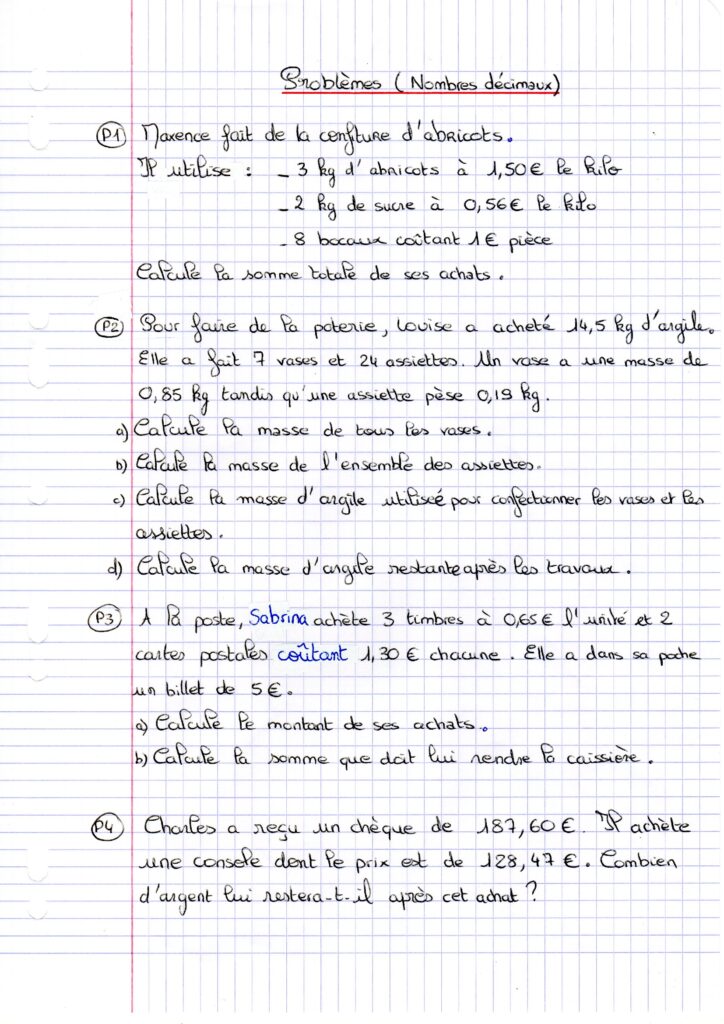 Problèmes ( Nombres décimaux)
P1 Maxence fait de la confiture d'abricots.
Il utilise : - 3 kg d'abricots à 1,50 € le kilo
- 2 kg de sucre à 0,56 € le kilo
- 8 bocaux coûtant 1 € pièce
Calcule la somme totale de ses achats.
P2 Pour faire de la poterie, Louise a acheté 14,5 kg d'argile.
Elle a fait 7 vases et 24 assiettes. Un vase a une masse de
0,85 kg tandis qu'une assiette pèse 0,19 kg.
a) Calcule la masse de tous les vases.
b) Calcule la masse de l'ensemble des assiettes.
c) Calcule la masse d'argile utilisée pour confectionner les vases et les
assiettes.
d) Calcule la masse d'argile restante après les travaux.
P3 A la poste, Sabrina achète 3 timbres à 0,65 € l'unité et 2
cartes postales coûtant 1,30 € chacune. Elle a dans sa poche
un billet de 5 €.
a) Calcule le montant de ses achats.
b) Calcule la somme que doit lui rendre la caissière.
P4 Charles a reçu un chèque de 187,60 €. Il achète
une console dont le prix est de 128,47 €. Combien
d'argent lui restera-t-il après cet achat ?